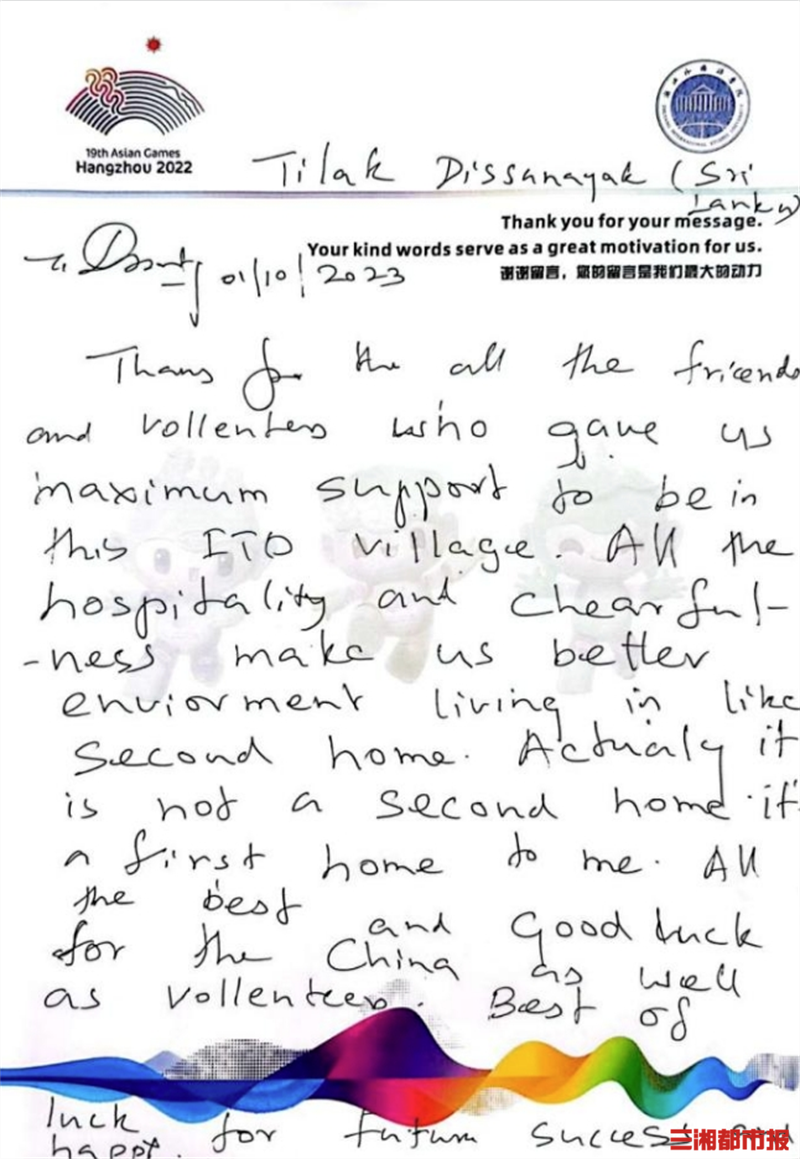 19th Asian Games
Hangzhou 2022
Tilak Dissanayak (Sri
Lanka)
Thank you for your message.
Your kind words serve as a great motivation for us.
谢谢留言，您的留言是我们最大的动力
01/10/2023
Thans for the all the friends
and vollenters who gave us
maximum support to be in
this ITO village. All the
hospitality and chearful-
-ness make us better
enviorment living in like
second home. Actualy it
is not a second home. it's
a first home to me. All
the best and Good luck
for the China as well
as vollenteers. Best of
luck for future success and
happy.
三湘都市报